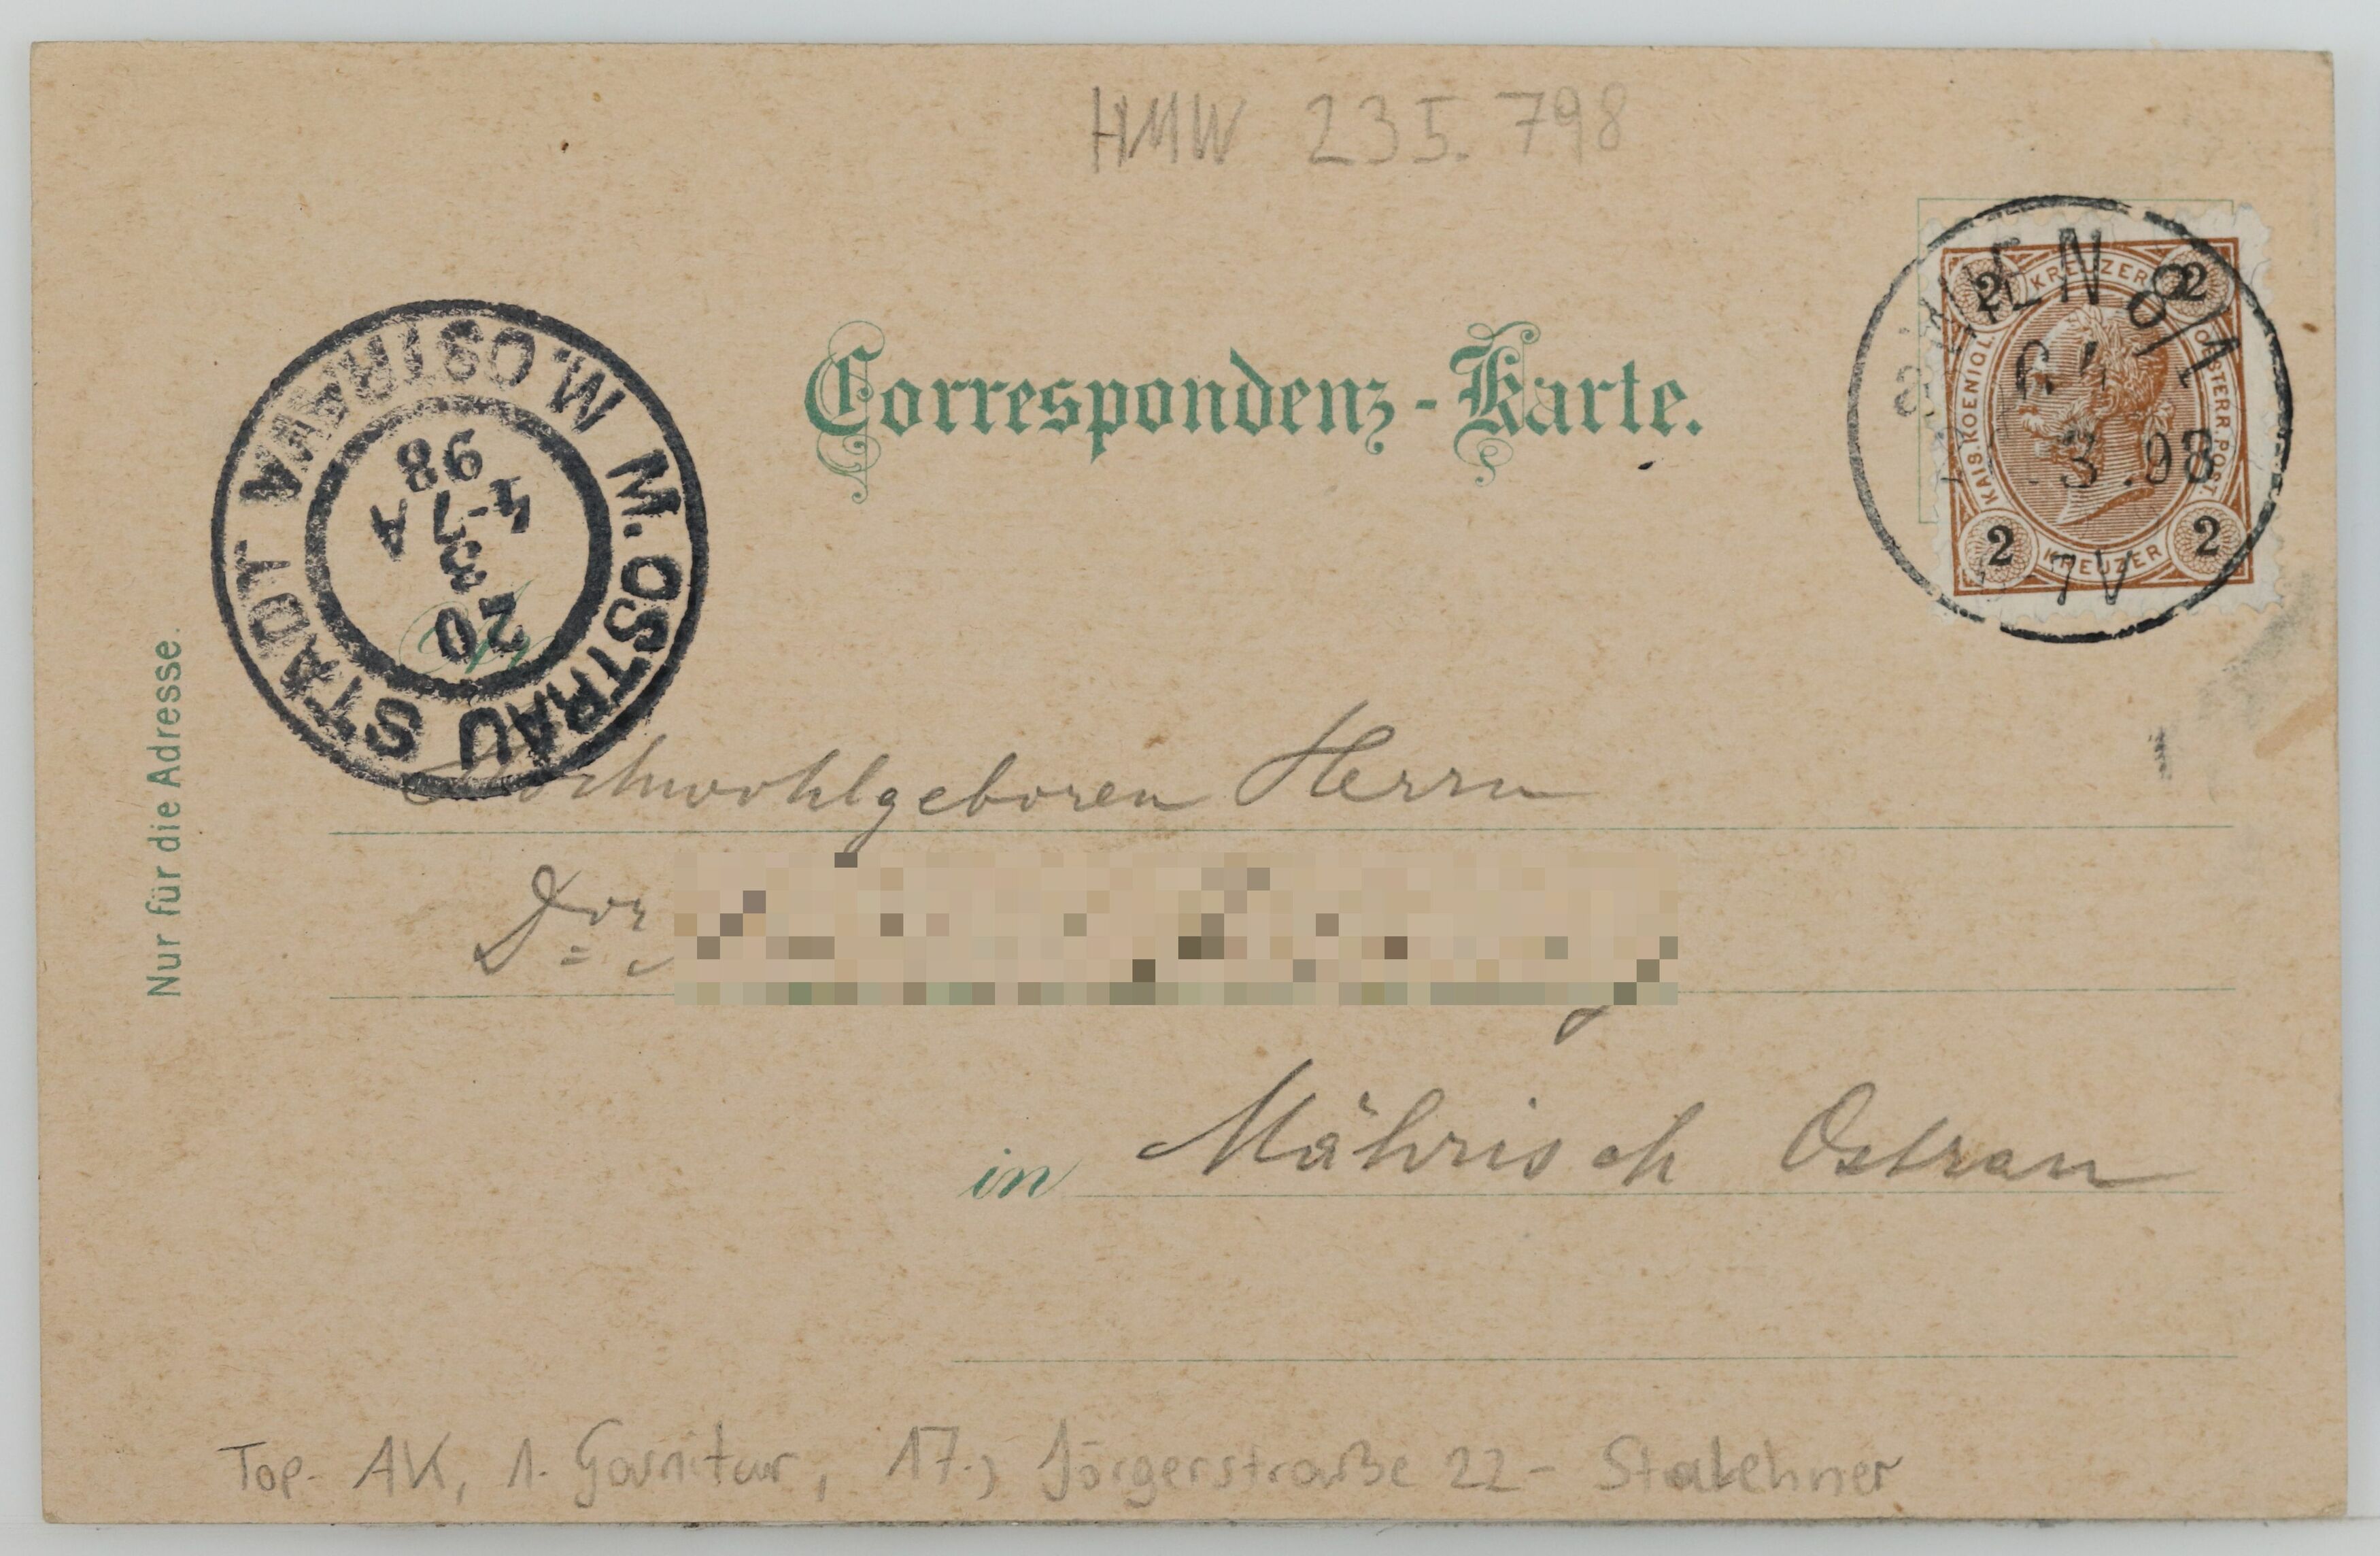 HMW 235.798
Correspondenz-Karte.
WIEN 8/1
3.98
7V
2 KREUZER 2
KAIS. KOENIGL.
OESTERR. POST.
2 KREUZER 2
M. OSTRAU STADT
M. OSTRAVA
20
3
4-7A
98
An
Nur für die Adresse.
Hochwohlgeboren Herrn
Dor
in Mährisch Ostrau
Top. AK, 1. Garnitur, 17., Jörgerstraße 22 - Stalehner